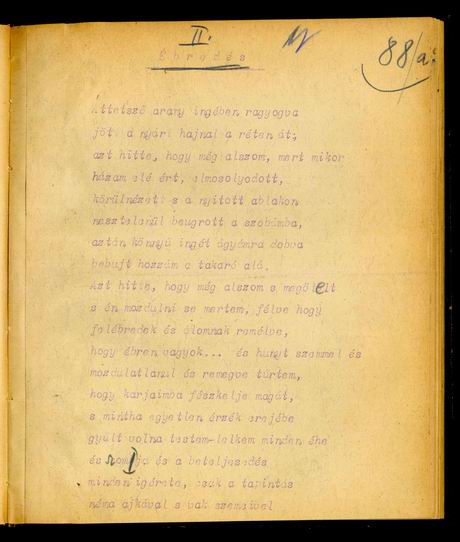 II.
88/a.
Ébredés
Áttetsző arany ingében ragyogva
jött a nyári hajnal a réten át;
azt hitte, hogy még alszom, mert mikor
házam elé ért, elmosolyodott,
körülnézett s a nyitott ablakon
nesztelenül beugrott a szobámba,
aztán könnyü ingét ágyamra dobva
bebujt hozzám a takaró alá.
Azt hitte, hogy még alszom s megölelt
s én mozdulni se mertem, félve hogy
felébredek és álomnak remélve,
hogy ébren vagyok... és hunyt szemmel és
mozdulatlanul és remegve tűrtem,
hogy karjaimba fészkelje magát,
s mintha egyetlen érzék erejébe
gyült volna testem-lelkem minden éhe
és szomja és a beteljesedés
minden igérete, csak a tapintás
néma ajkával s vak szemeivel